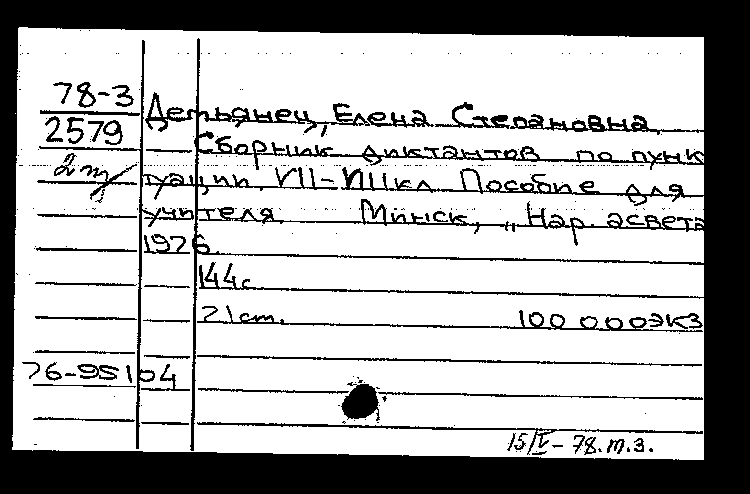 78-3
Детьянец, Елена Степановна
2579
Сборник диктантов по пунк
2 т/
туации. VII-VIII кл Пособие для
учителя. Минск, „Нар. асвета
1976.
144с.
21 cm. 100 000 экз
76-95104
15/V - 78. т.з.